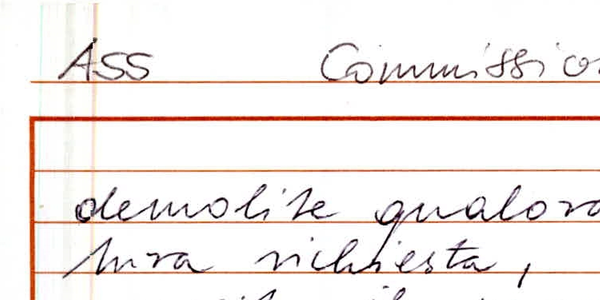 ASS Commissio
demolite qualora
tura richiesta,